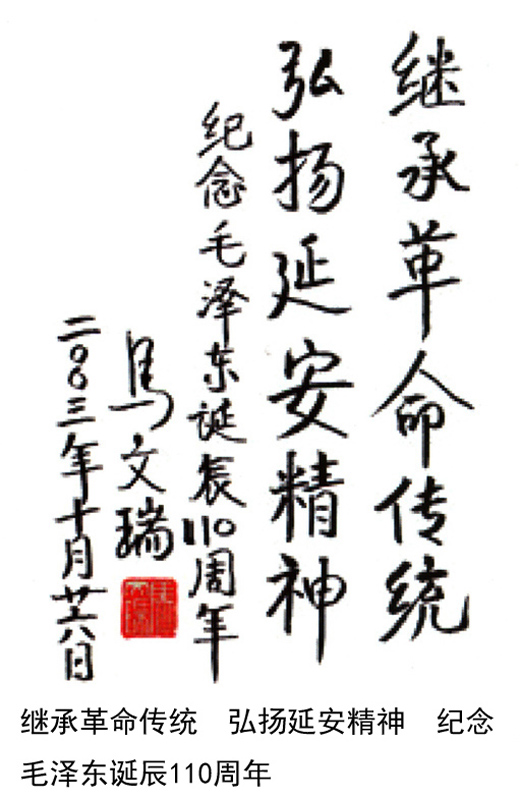 继承革命传统
弘扬延安精神
纪念毛泽东诞辰110周年
马文瑞
二〇〇三年十月廿六日
继承革命传统 弘扬延安精神 纪念
毛泽东诞辰110周年